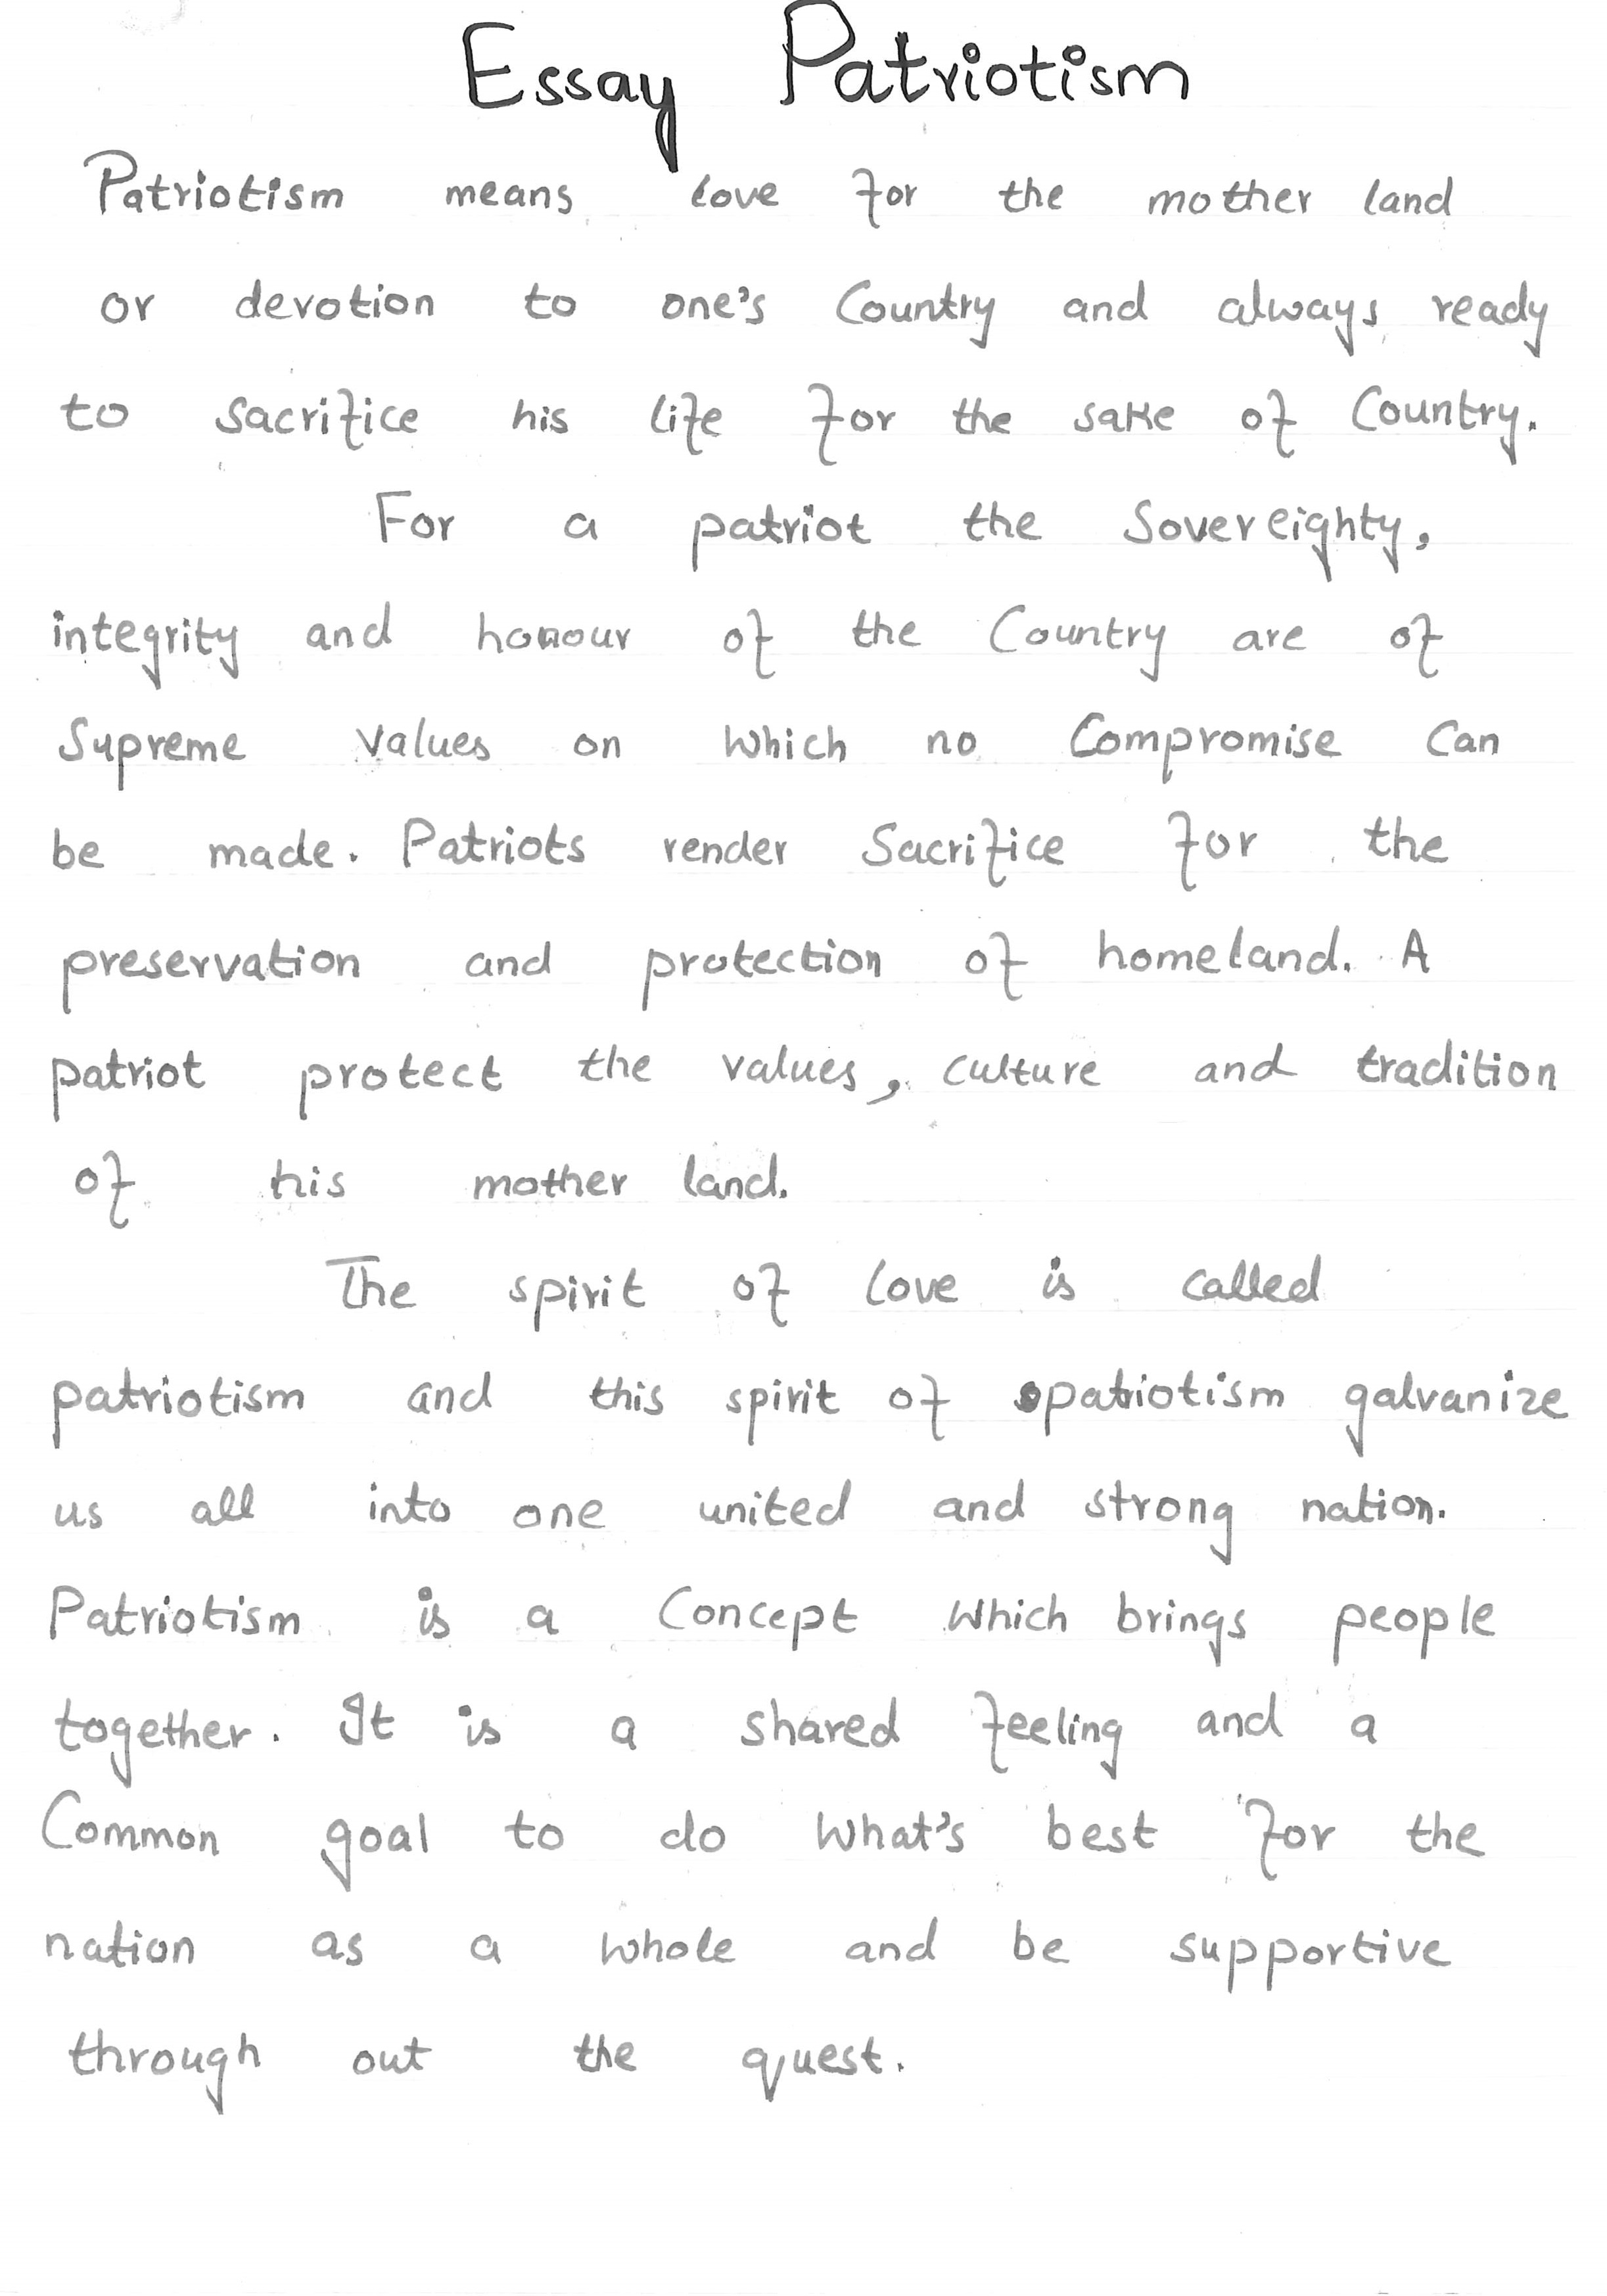 Essay Patriotism
Patriotism means love for the mother land
or devotion to one's Country and always ready
to sacrifice his life for the sake of Country.
For a patriot the Sovereighty,
integrity and honour of the Country are of
Supreme values on which no Compromise Can
be made. Patriots render Sacrifice for the
preservation and protection of homeland. A
patriot protect the values, culture and tradition
of his mother land.
The spirit of love is called
patriotism and this spirit of patriotism galvanize
us all into one united and strong nation.
Patriotism is a Concept which brings people
together. It is a shared feeling and a
Common goal to do what's best for the
nation as a whole and be supportive
through out the quest.